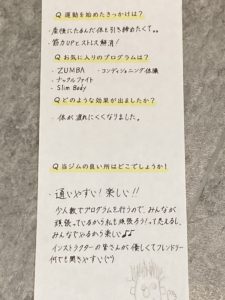 Q 運動を始めたきっかけは?
・産後にたるんだ体を引き締めたくて。。
筋力UPとストレス解消!
Q お気に入りのプログラムは?
・ZUMBA ・コンディショニング体操
・ナックルファイト
・Slim Body
Q どのような効果が出ましたか?
・体が疲れにくくなりました。
Q 当ジムの良い所はどこでしょうか!
・通いやすい! 楽しい!!
少人数でプログラムを行うので、みんなが
頑張っているから私も頑張ろう!って思えるし、
みんなでやるから楽しい♪♪
インストラクターの皆さんが優しくてフレンドリー
何でも聞きやすい(^^)